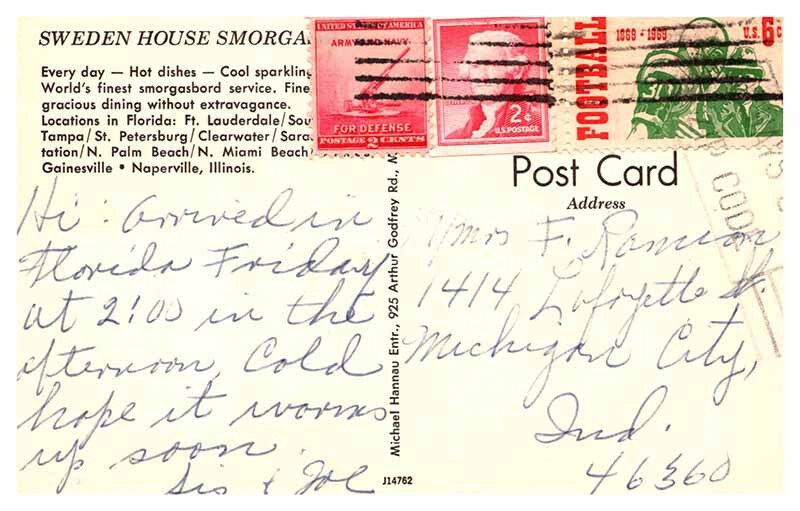 SWEDEN HOUSE SMORGA
Every day — Hot dishes — Cool sparkling
World's finest smorgasbord service. Fine
gracious dining without extravagance.
Locations in Florida: Ft. Lauderdale/Sou
Tampa/St. Petersburg/Clearwater/Sara
tation/N. Palm Beach/N. Miami Beach
Gainesville • Naperville, Illinois.
UNITED STATES OF AMERICA
ARMY AND NAVY
FOR DEFENSE
POSTAGE 2 CENTS
2¢
U.S. POSTAGE
FOOTBALL
1869-1969
U.S. 6c
Post Card
Address
Hi: Arrived in
Florida Friday
at 2:00 in the
afternoon, Cold
hope it warms
up soon.
Sis & Joe
Michael Hannau Entr., 925 Arthur Godfrey Rd., M
Mrs F.
1414 Lafayette St.
Michigan City,
Ind.
46360
J14762
CODE